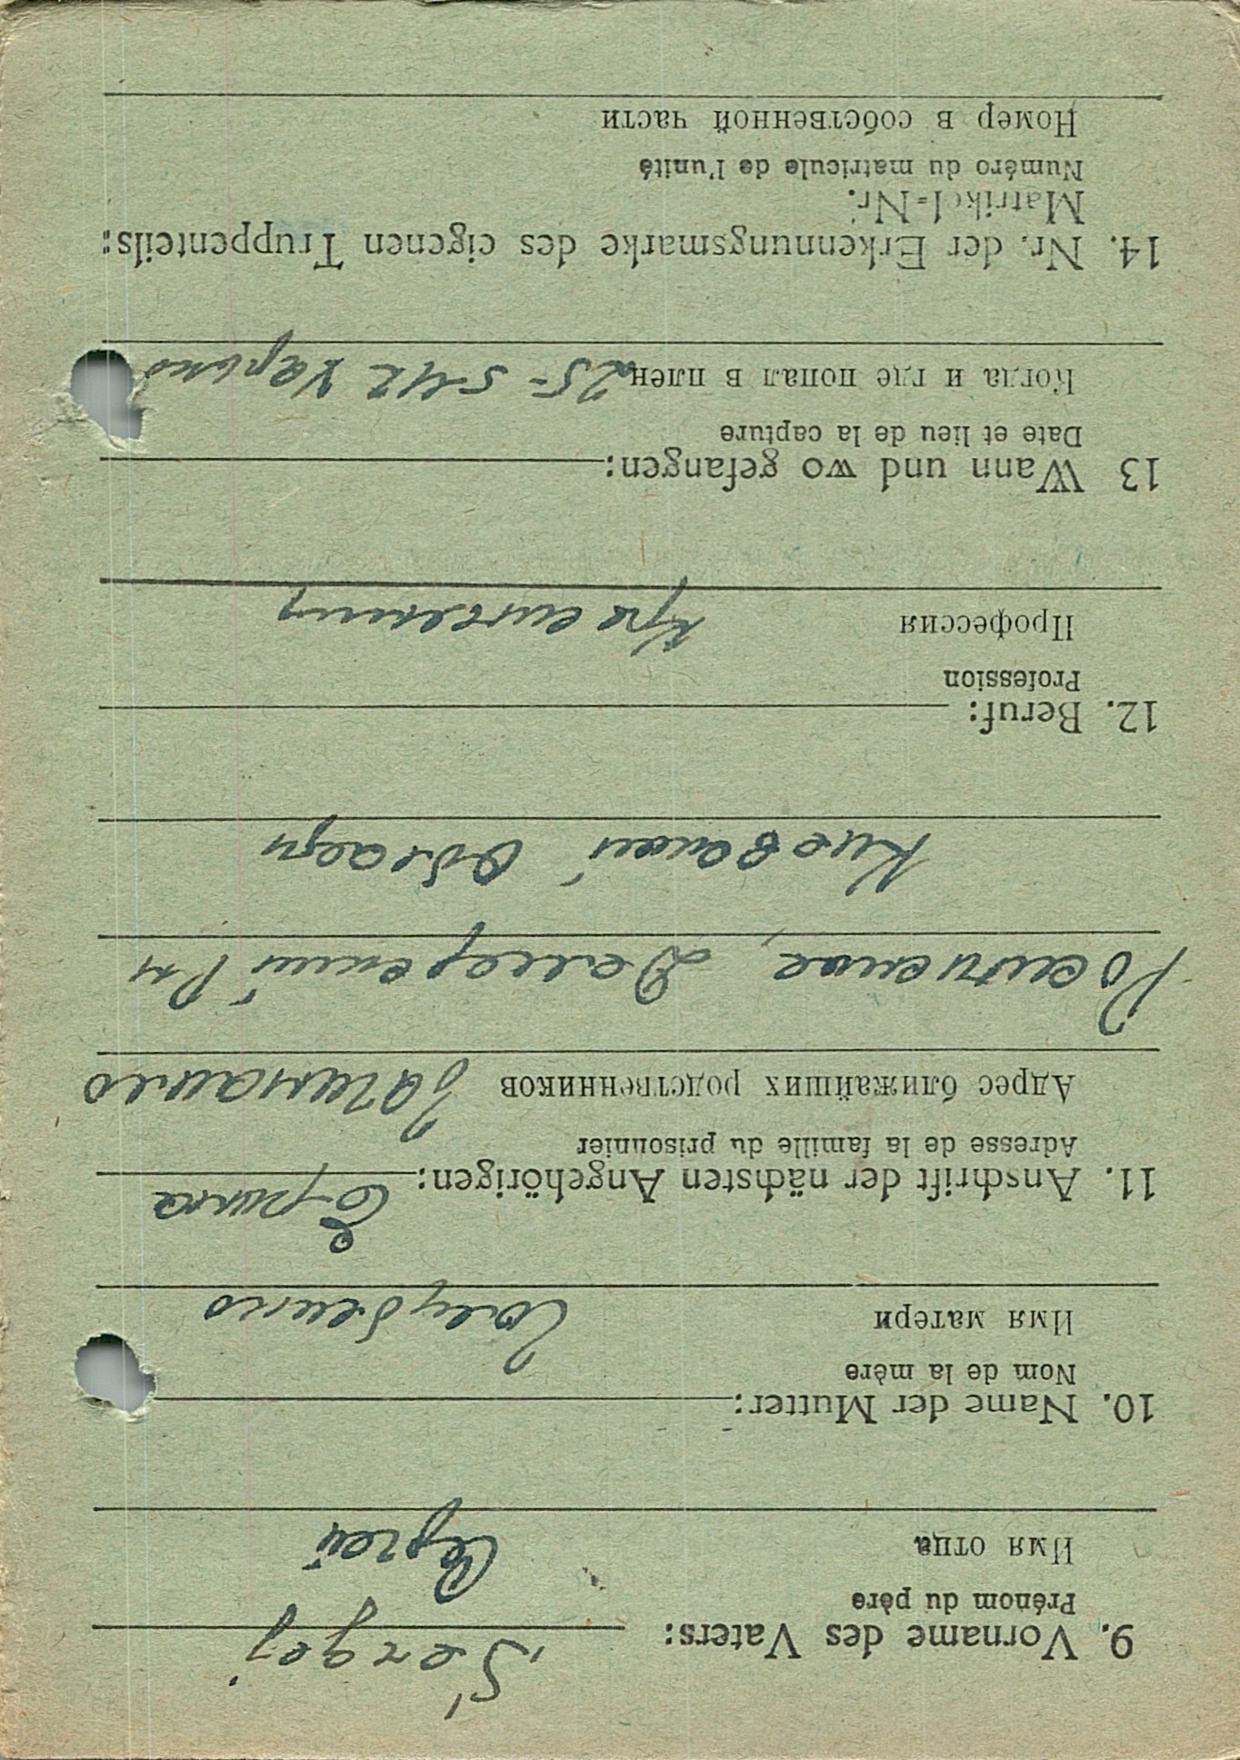 Sergej
9. Vorname des Vaters:
Prénom du père
Имя отца Сергей
10. Name der Mutter:
Nom de la mère
Имя матери Голубенко
11. Anschrift der nächsten Angehörigen:
Adresse de la famille du prisonnier
Адрес ближайших родственников
12. Beruf:
Profession
Профессия
13 Wann und wo gefangen:
Date et lieu de la capture
Когда и где попал в плен 25-5-42 Харьков
14. Nr. der Erkennungsmarke des eigenen Truppenteils:
Matrikel-Nr.
Numéro du matricule de l'unité
Номер в собственной части